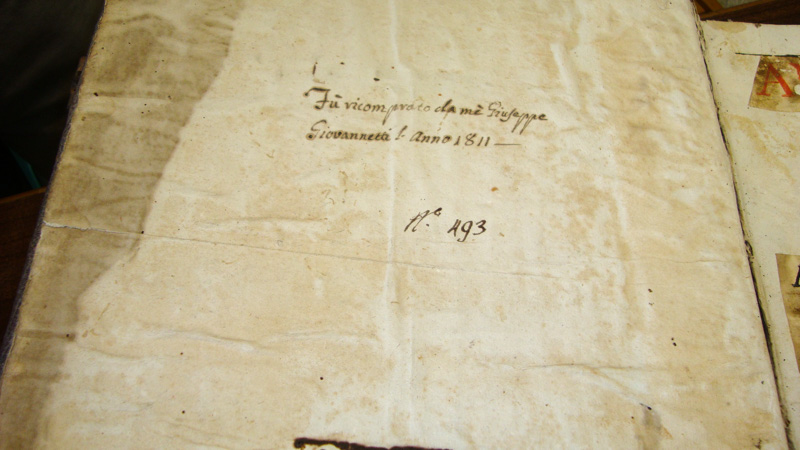 Fù ricomprato da mè Giuseppe
Giovannetti l'Anno 1811 —
N.º 493